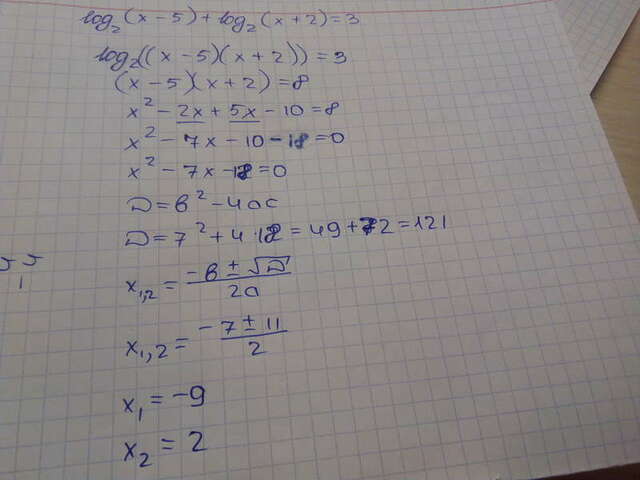 log₂(x - 5) + log₂(x + 2) = 3
log₂((x - 5)(x + 2)) = 3
(x - 5)(x + 2) = 8
x² - 2x + 5x - 10 = 8
x² - 7x - 10 - 18 = 0
x² - 7x - 18 = 0
D = b² - 4ac
D = 7² + 4·18 = 49 + 72 = 121
x₁,₂ = (-b ± √D) / 2a
x₁,₂ = (-7 ± 11) / 2
x₁ = -9
x₂ = 2